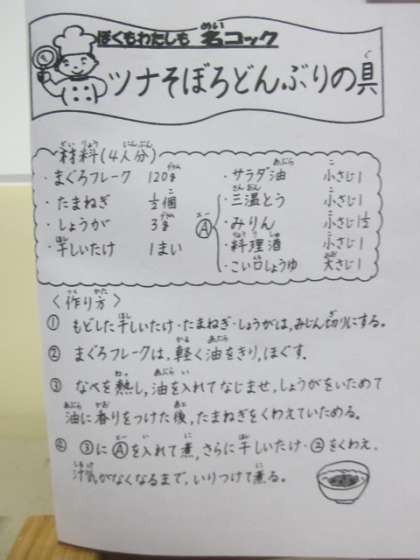 ぼくもわたしも 名コック
ツナそぼろどんぶりの具
材料(4人分)
・まぐろフレーク 120g
・たまねぎ 1/2個
・しょうが 3g
・干しいたけ 1まい
・サラダ油 小さじ1
Ⓐ
・三温とう 小さじ1
・みりん 小さじ1½
・料理酒 小さじ1
・こい口しょうゆ 大さじ1
〈作り方〉
① もどした干しいたけ・たまねぎ・しょうがは,みじん切りにする。
② まぐろフレークは,軽く油をきり,ほぐす。
③ なべを熱し,油を入れてなじませ,しょうがをいためて
油に香りをつけた後,たまねぎをくわえていためる。
④ ③にⒶを入れて煮,さらに干しいたけ・②をくわえ,
汁気がなくなるまで,いりつけて煮る。